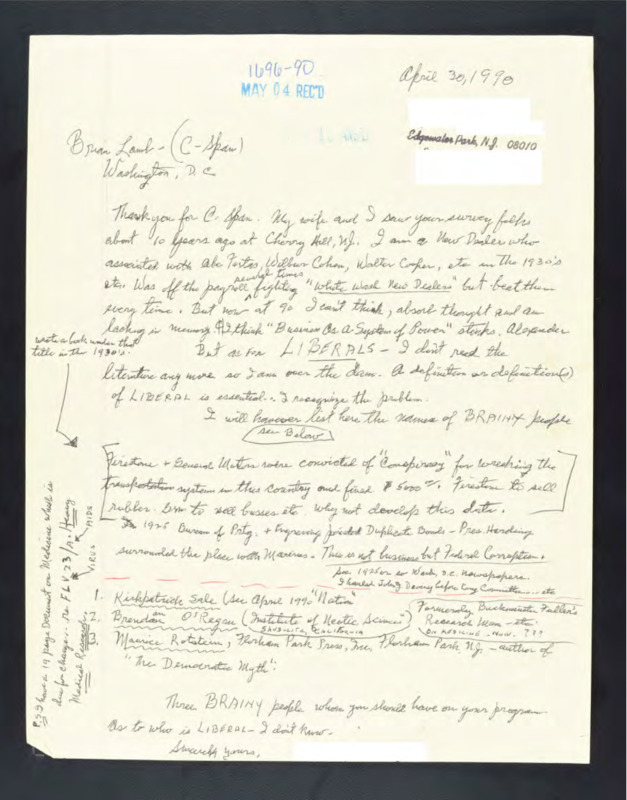 1696-90
MAY 04 REC'D
April 30, 1990
Edgewater Park, N.J. 08010
Brian Lamb - (C-Span)
Washington, D.C.
Thank you for C-Span. My wife and I saw your survey folks
about 10 years ago at Cherry Hill, NJ. I am a New Dealer who
associated with Abe Fortas, Wilbur Cohen, Walter Cooper, etc in the 1930's
several times
etc. Was off the payroll fighting "White Wash New Dealers" but beat them
every time. But now at 90 I can't think, absorb thought and am
lacking in memory. I think "Business As a System of Power" stinks. Alexander
wrote a book under that
title in the 1930's.
But as for LIBERALS - I don't read the
literature any more so I am over the dam. A definition or definition(s)
of LIBERAL is essential. I recognize the problem.
I will however list here the names of BRAINY people
see Below
Firestone + General Motors were convicted of "Conspiracy" for wrecking the
transportation system in this country and fined $5000. Firestone to sell
rubber. GM to sell busses etc. Why not develop this data.
In 1925 Bureau of Prtg. + Engraving printed Duplicate Bonds - Pres. Harding
surrounded the place with Marines. This is not business but Federal Corruption.
see 1925 Wash, D.C. Newspapers.
I before Cong Committee... etc
1. Kirkpatrick Sale (see April 1990 "Nation"
2. Brendan O'Regan (Institute of Noetic Sciences)
SAUSALITO, CALIFORNIA
Formerly Buckminster Fuller's
Research Man - etc.
ON MEDICINE. NOW. ???
3. Maurice Rotstein, Florham Park Press, Inc, Florham Park NJ - author of
"The Democratic Myth".
Three BRAINY people whom you should have on your program
As to who is LIBERAL - I don't know.
Sincerely yours,
P.S. I have a 19 page Document on Medicine which is
due for change... re FLV 23/A. Heavy
Medical Research
VIRUS AIDS